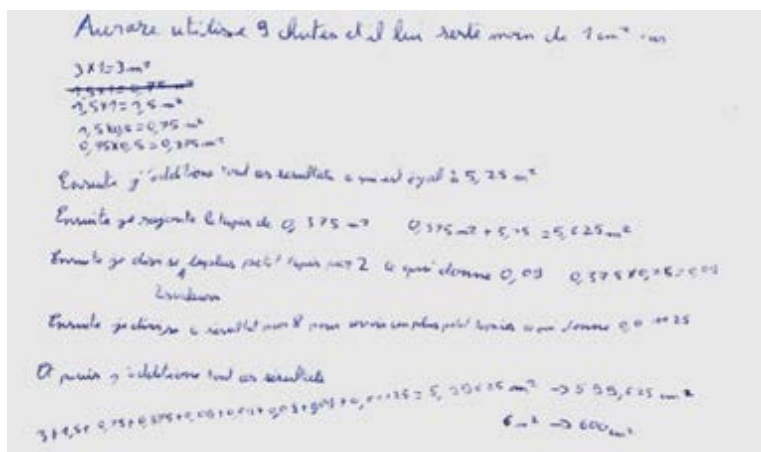 Aurore utilise 9 chutes et il lui reste moin de 1 cm²
3x1=3 m²
1,5x1=1,5 m²
1,5x0,5=0,75 m²
0,75x0,5=0,375 m²
Ensuite j'additione tout ces resultats ce qui est egal à 5,25 m²
Ensuite je rajoute le tapis de 0,375 m² 0,375 m² + 5,25 = 5,625 m²
Ensuite je divise le plus petit tapis par 2 ce qui donne 0,09 0,375x0,25=0,09
Ensuite je divise ce résultat par 8 pour avoir un plus petit tapis ce qui donne
Et puis j'additione tout ces résultats
3+1,5+0,75+0,375+0,09+ = 5,99625 m² → 599,625 m²
6 m² → 600 cm²